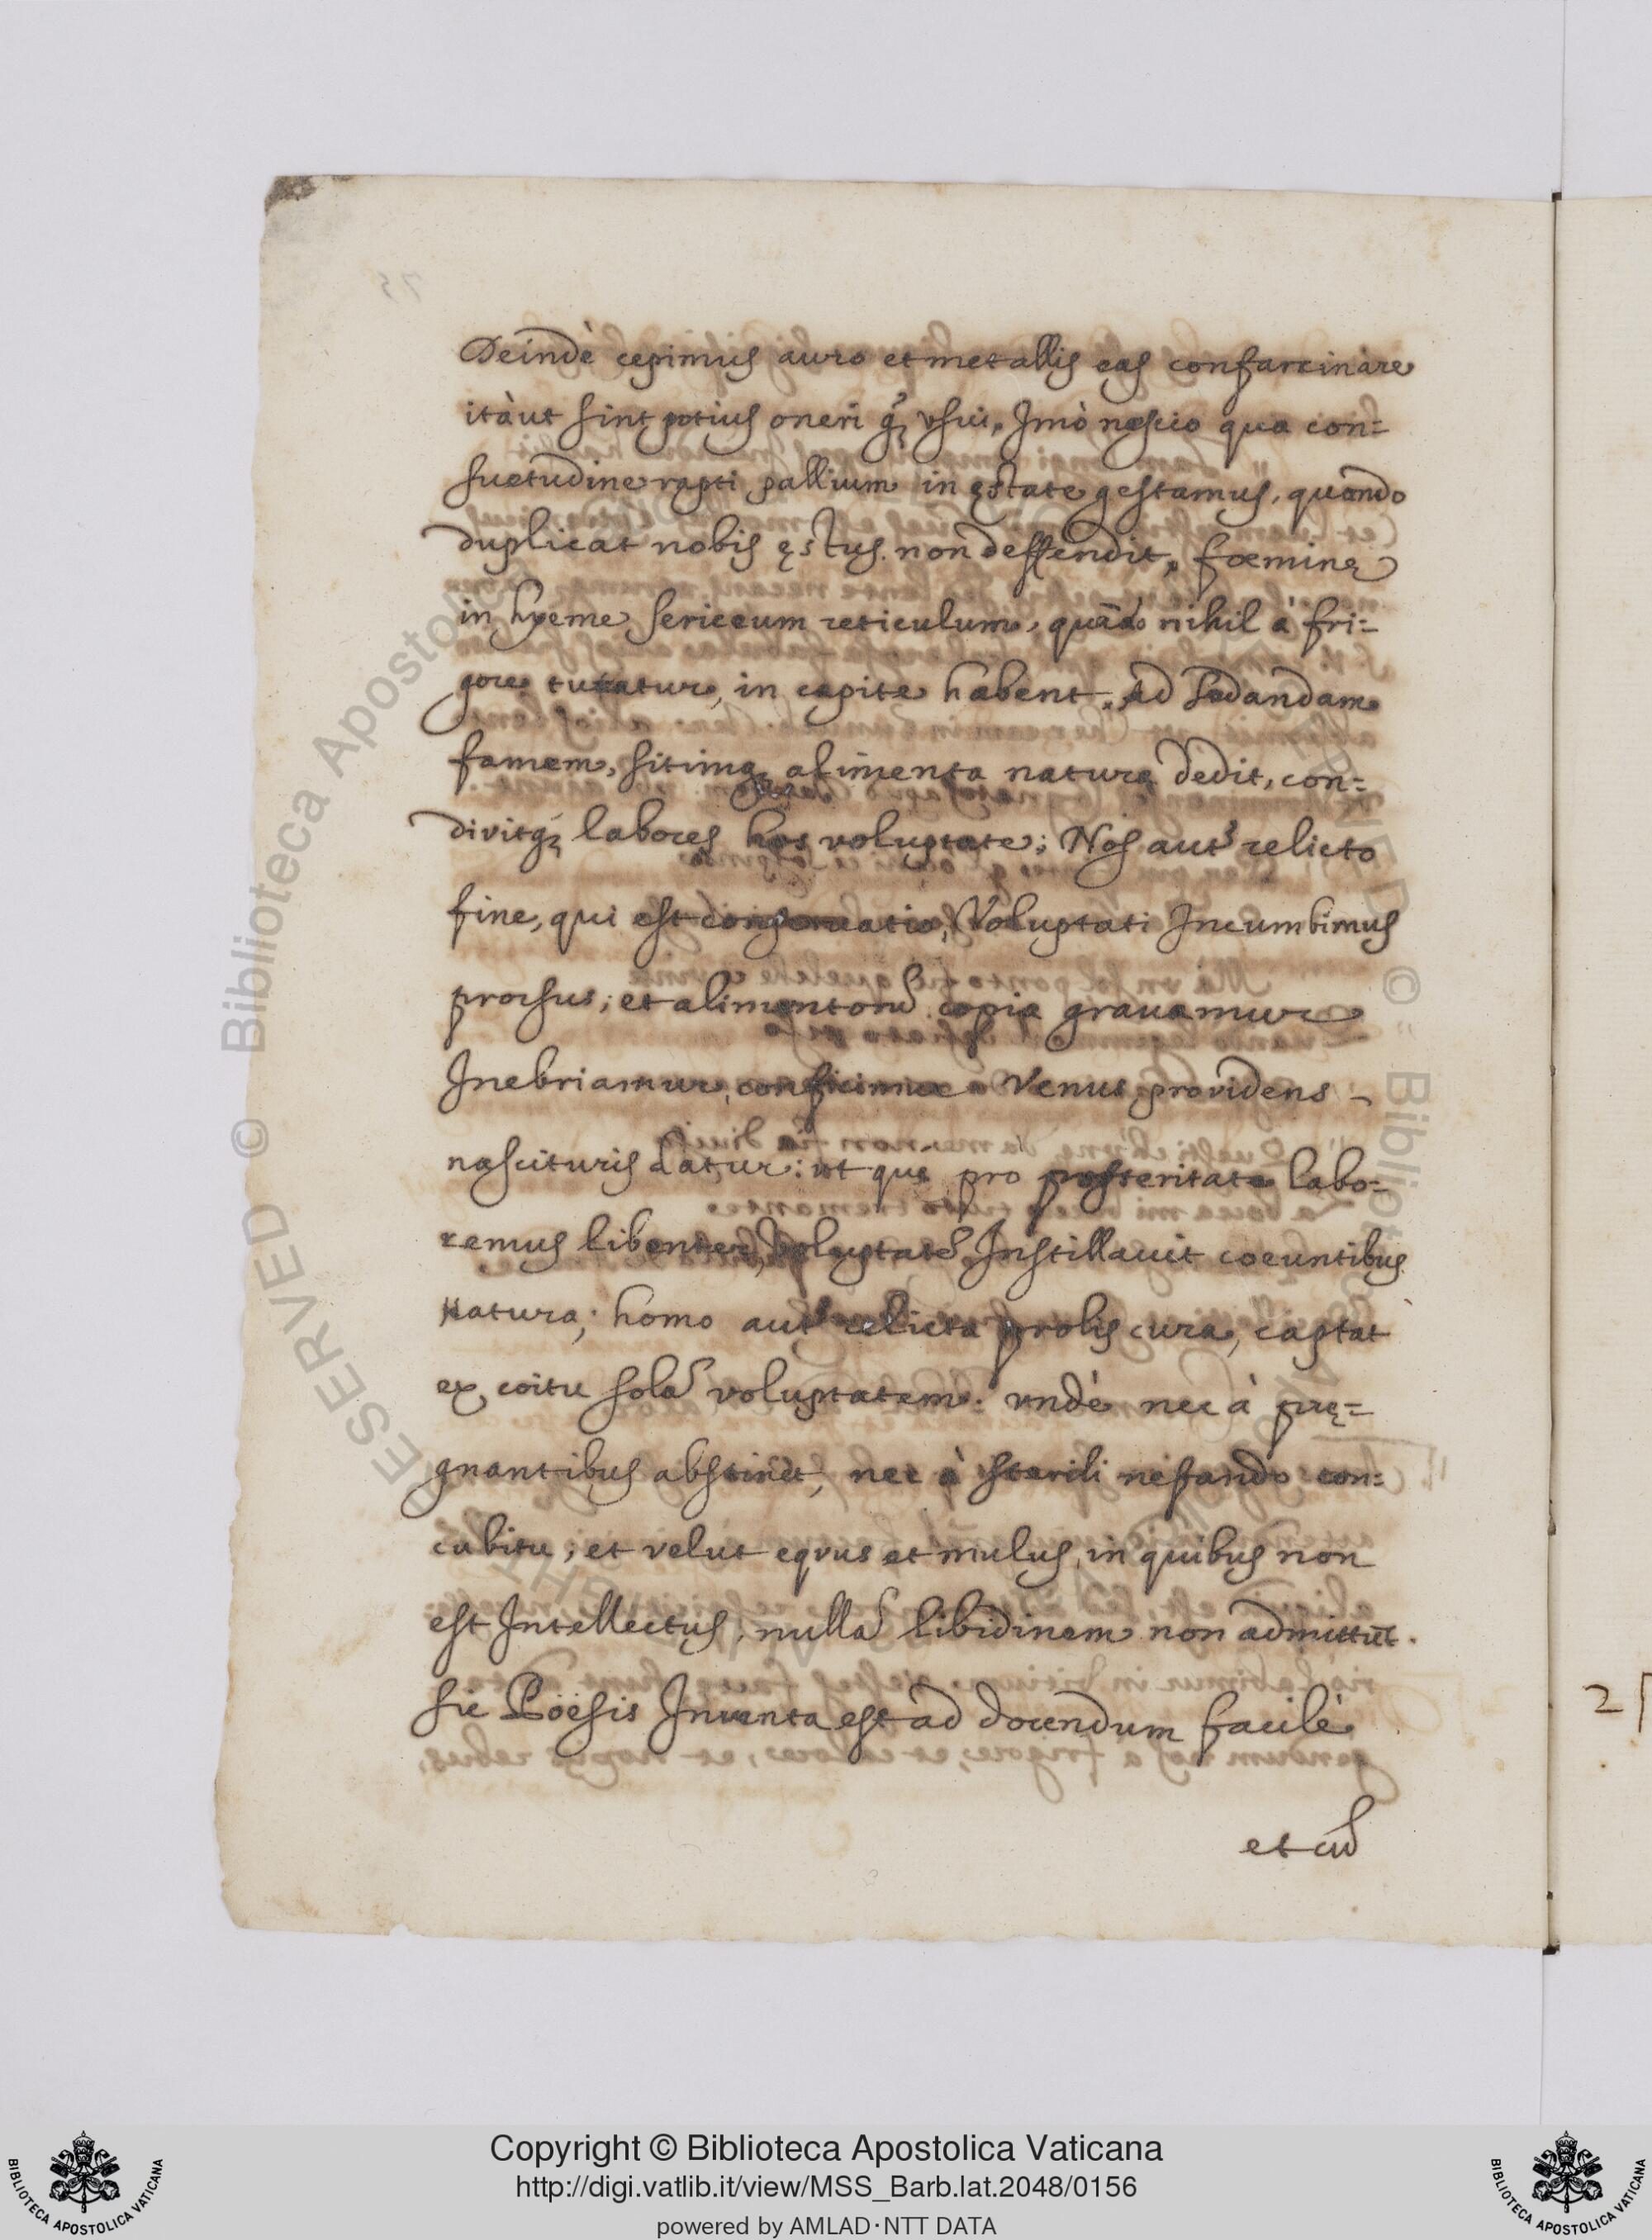 Deindè cepimus auro et metallis eas confarcinare
itàut sint potius oneri q̃ʒ vsui. Imò nescio qua con=
suetudine rapti pallium in ęstate gestamus, quando
duplicat nobis ęstus. non deffendit, fœminę
in hyeme sericeum reticulum, quãdo nihil à fri=
gore tutatur, in capite habent. Ad sedandam
famem, sitimqʒ alimenta natura dedit, con=
divitqʒ labores hos voluptate; Nos aut̃ relicto
fine, qui est conseruatio, Voluptati Incumbimus
prorsus; et alimentorũ copia grauamur
Inebriamur, conficimur. Venus providens
nascituris datur: ut que pro posteritate labo=
remus libenter, voluptatẽ Instillauit coeuntibus
Natura; homo aut̃ relicta prolis cura, captat
ex coitu solã voluptatem. vndè nec à prę=
gnantibus abstinet, nec à sterili nefando con=
cubitu; et velut eqvus et mulus, in quibus non
est Intellectus, nullã libidinem non admittũt.
Sic Pöesis Inuenta est ad docendum facilè
et cũ
2
Copyright © Biblioteca Apostolica Vaticana
http://digi.vatlib.it/view/MSS_Barb.lat.2048/0156
powered by AMLAD·NTT DATA
BIBLIOTECA APOSTOLICA VATICANA
BIBLIOTECA APOSTOLICA VATICANA